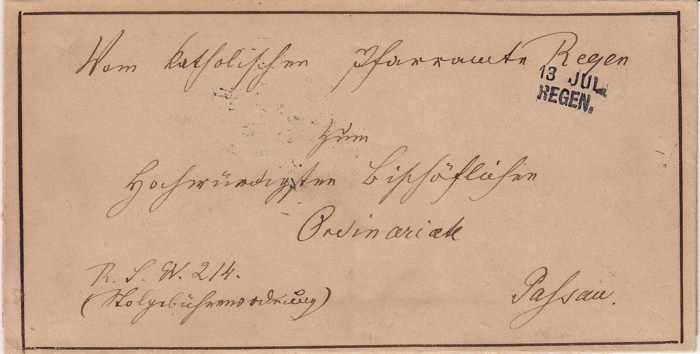 Vom Katholischen Pfarramte Regen
13 JUL
REGEN.
zum
Hochwürdigsten Bischöflichen
Ordinariate
R. S. W. 214.
(Stolgebührenordnung)
Passau.